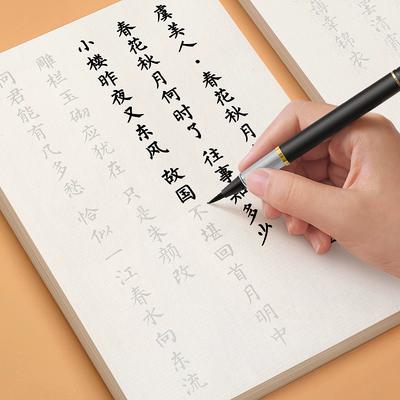 虞美人·春花秋月
春花秋月何时了 往事知多少
小楼昨夜又东风 故国不堪回首月明中
雕栏玉砌应犹在 只是朱颜改
问君能有几多愁 恰似一江春水向东流